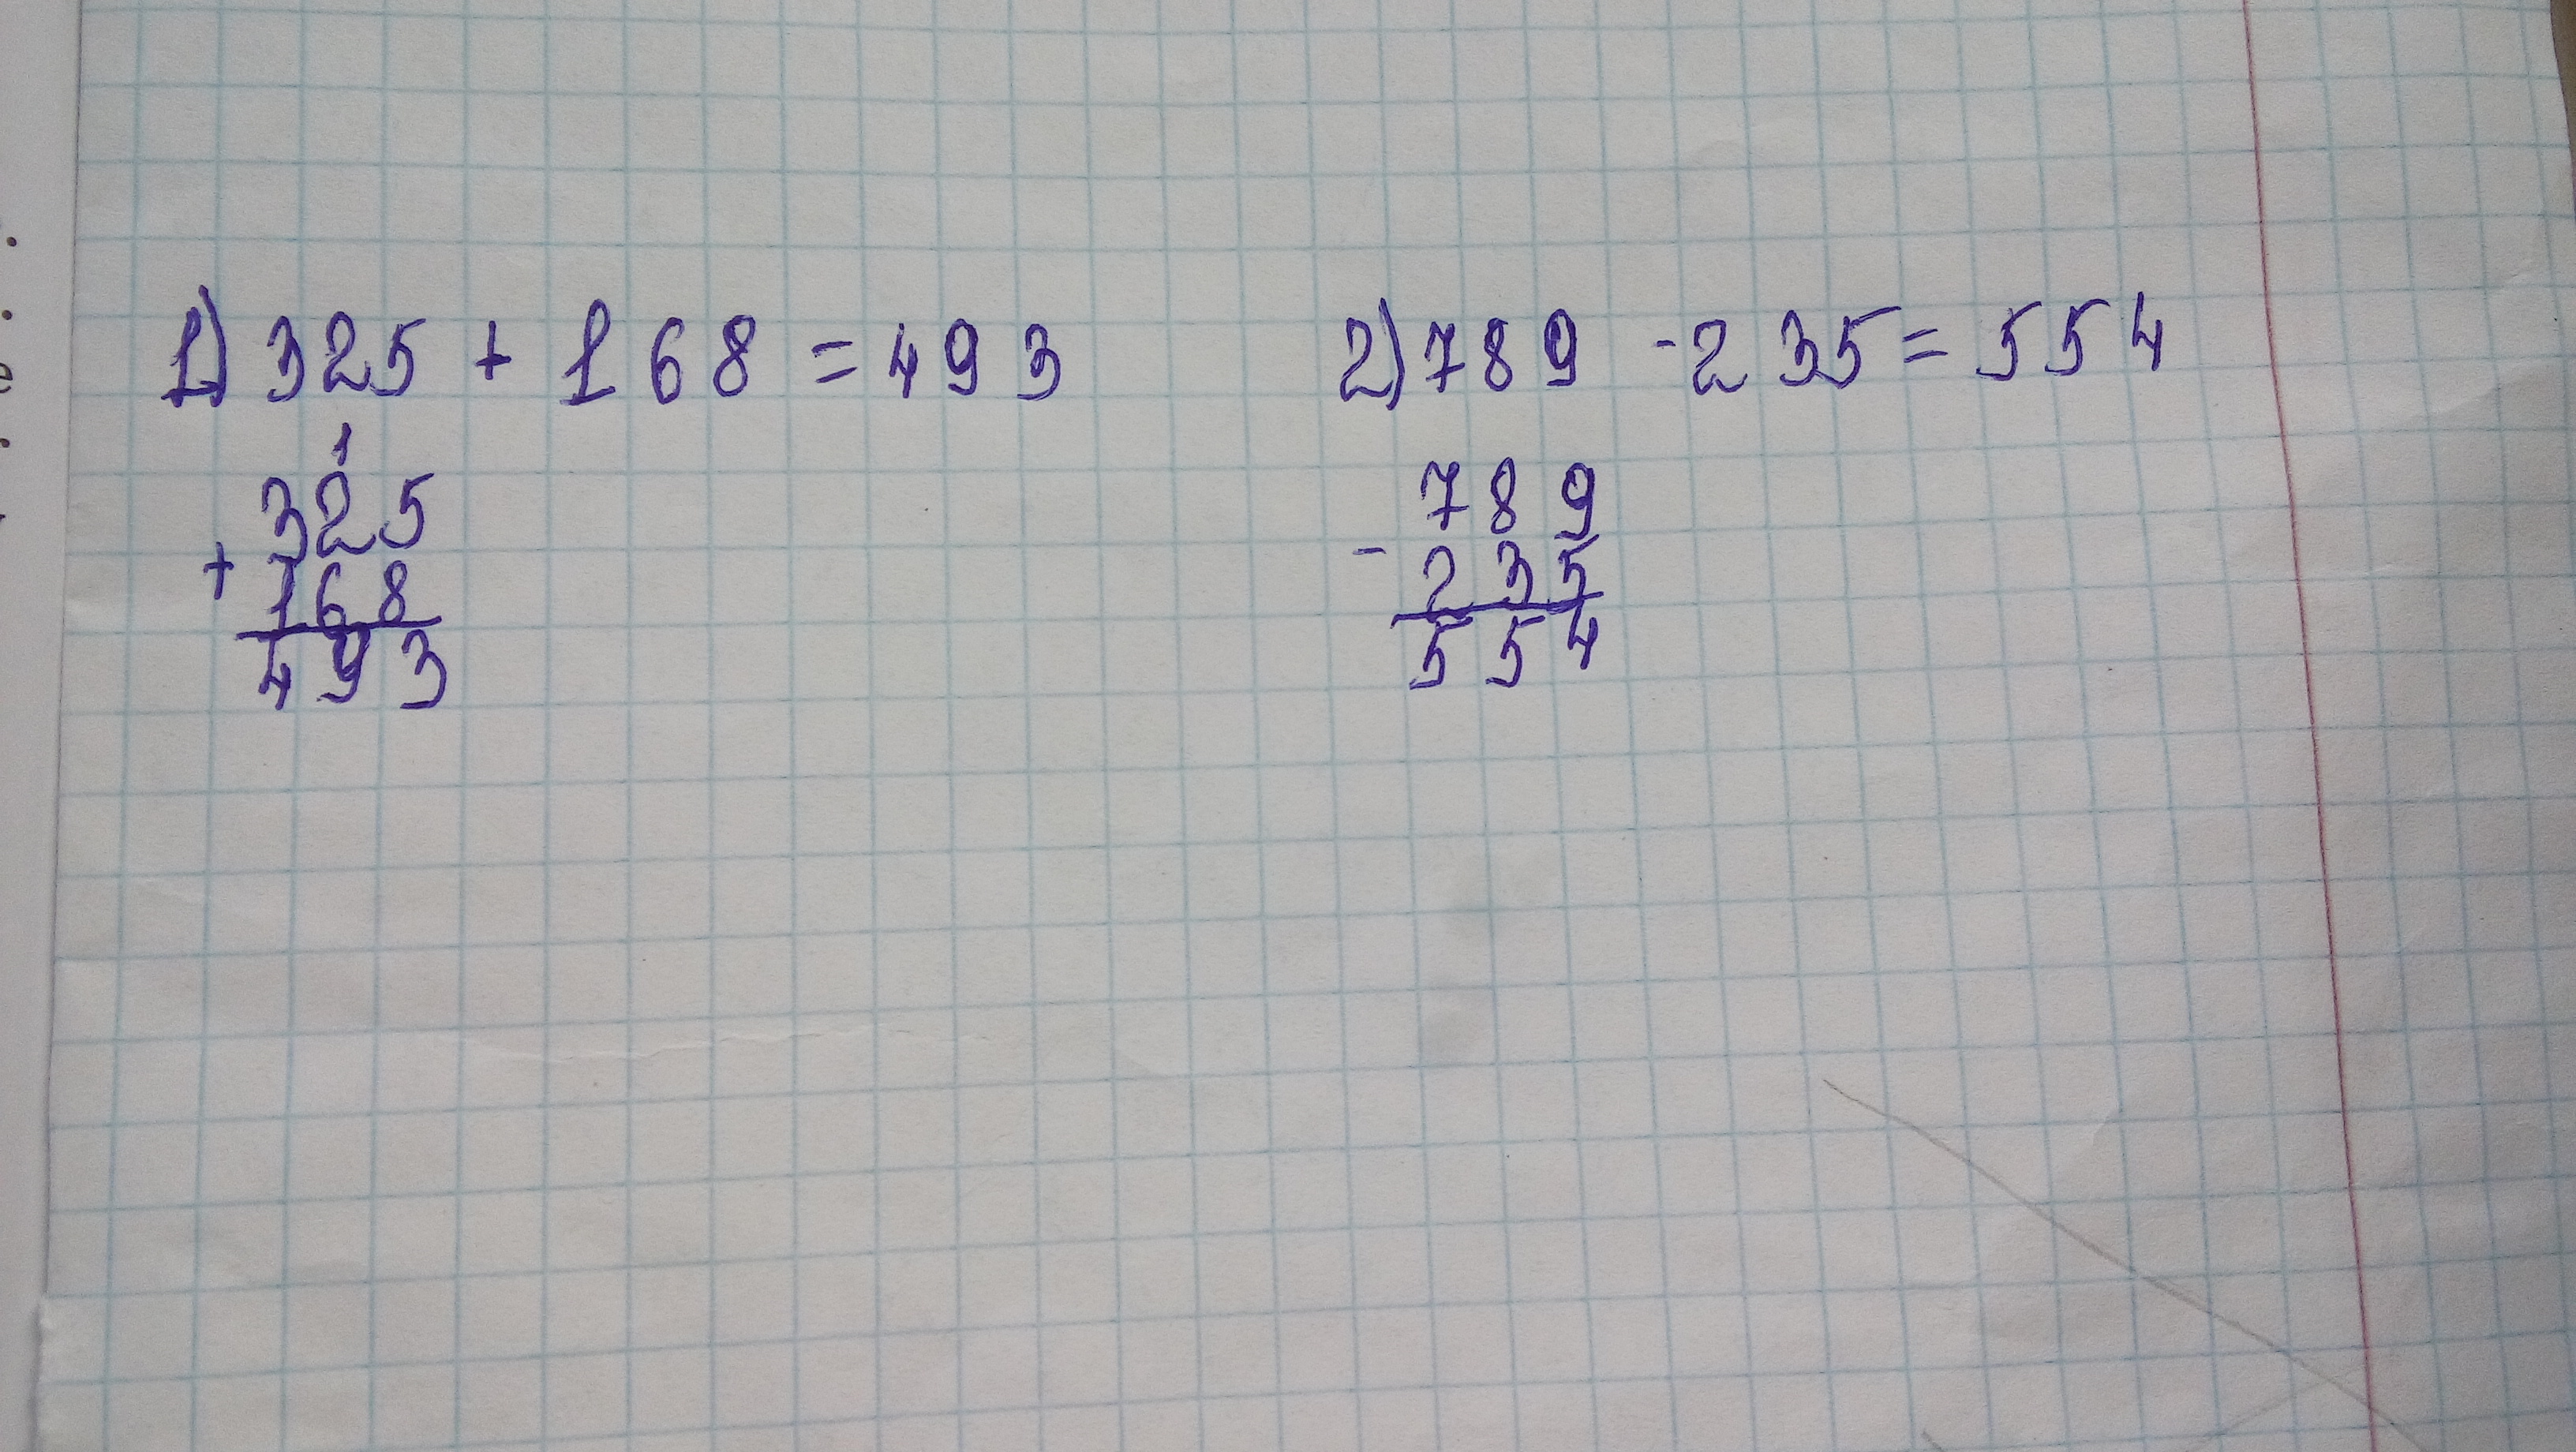 1) 325 + 168 = 493
1
325
+
168
493
2) 789 - 235 = 554
789
-
235
554